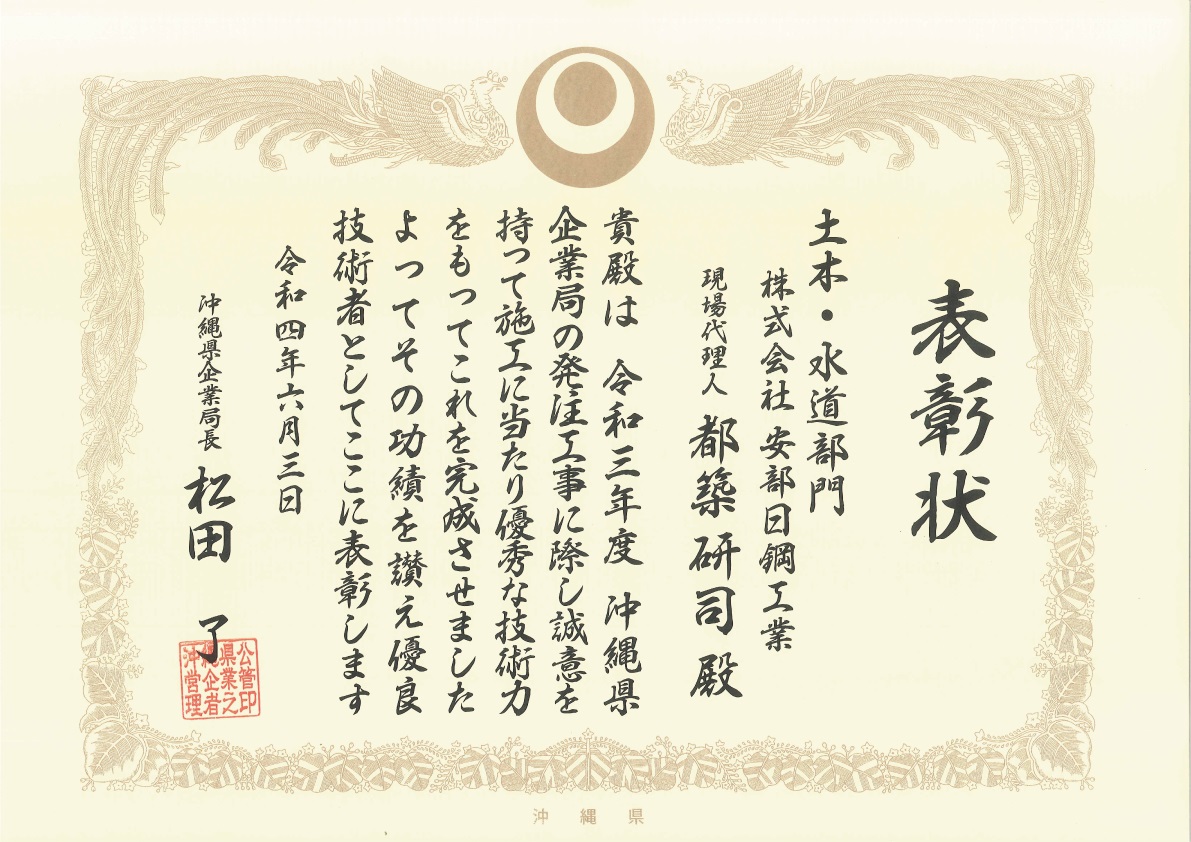 表彰状
土木・水道部門
株式会社 安部日鋼工業
現場代理人 都築 研司 殿
貴殿は 令和三年度 沖縄県
企業局の発注工事に際し誠意を
持って施工に当たり優秀な技術力
をもってこれを完成させました
よってその功績を讃え優良
技術者としてここに表彰します
令和四年六月三日
沖縄県企業局長 松田 了
公管印
県業之
縄企者
沖営理
沖縄県